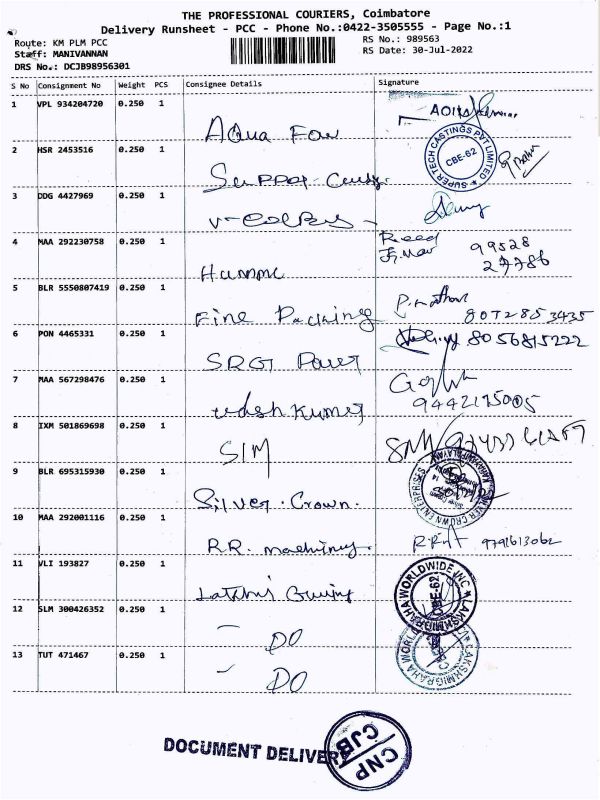 THE PROFESSIONAL COURIERS, Coimbatore
Delivery Runsheet - PCC - Phone No.:0422-3505555 - Page No.:1
Route: KM PLM PCC
RS No.: 989563
Staff: MANIVANNAN
RS Date: 30-Jul-2022
DRS No.: DCJB98956301
S No Consignment No Weight PCS Consignee Details Signature
1 VPL 934204720 0.250 1
Aqua Fow
2 HSR 2453516 0.250 1
SUPER TECH CASTINGS PVT LIMITED
CBE-62
3 DDG 4427969 0.250 1
4 MAA 292230758 0.250 1
99528
27786
Humme
5 BLR 5550807419 0.250 1
Fine Packing
8072853435
6 PON 4465331 0.250 1
8056815222
SRGT Power
7 MAA 567298476 0.250 1
udesh Kumar
9442175005
8 IXM 501869698 0.250 1
SIM
9 BLR 695315930 0.250 1
SILVER CROWN ENTERPRISES
Silver. Crown.
10 MAA 292001116 0.250 1
R.R. machinery.
9791613062
11 VLI 193827 0.250 1
LAKSHMIGRAHA WORLDWIDE INC
CBE-62
12 SLM 300426352 0.250 1
DO
13 TUT 471467 0.250 1
DO
LAKSHMIGRAHA WORLDWIDE INC
DOCUMENT DELIVERY
CNP
CJB